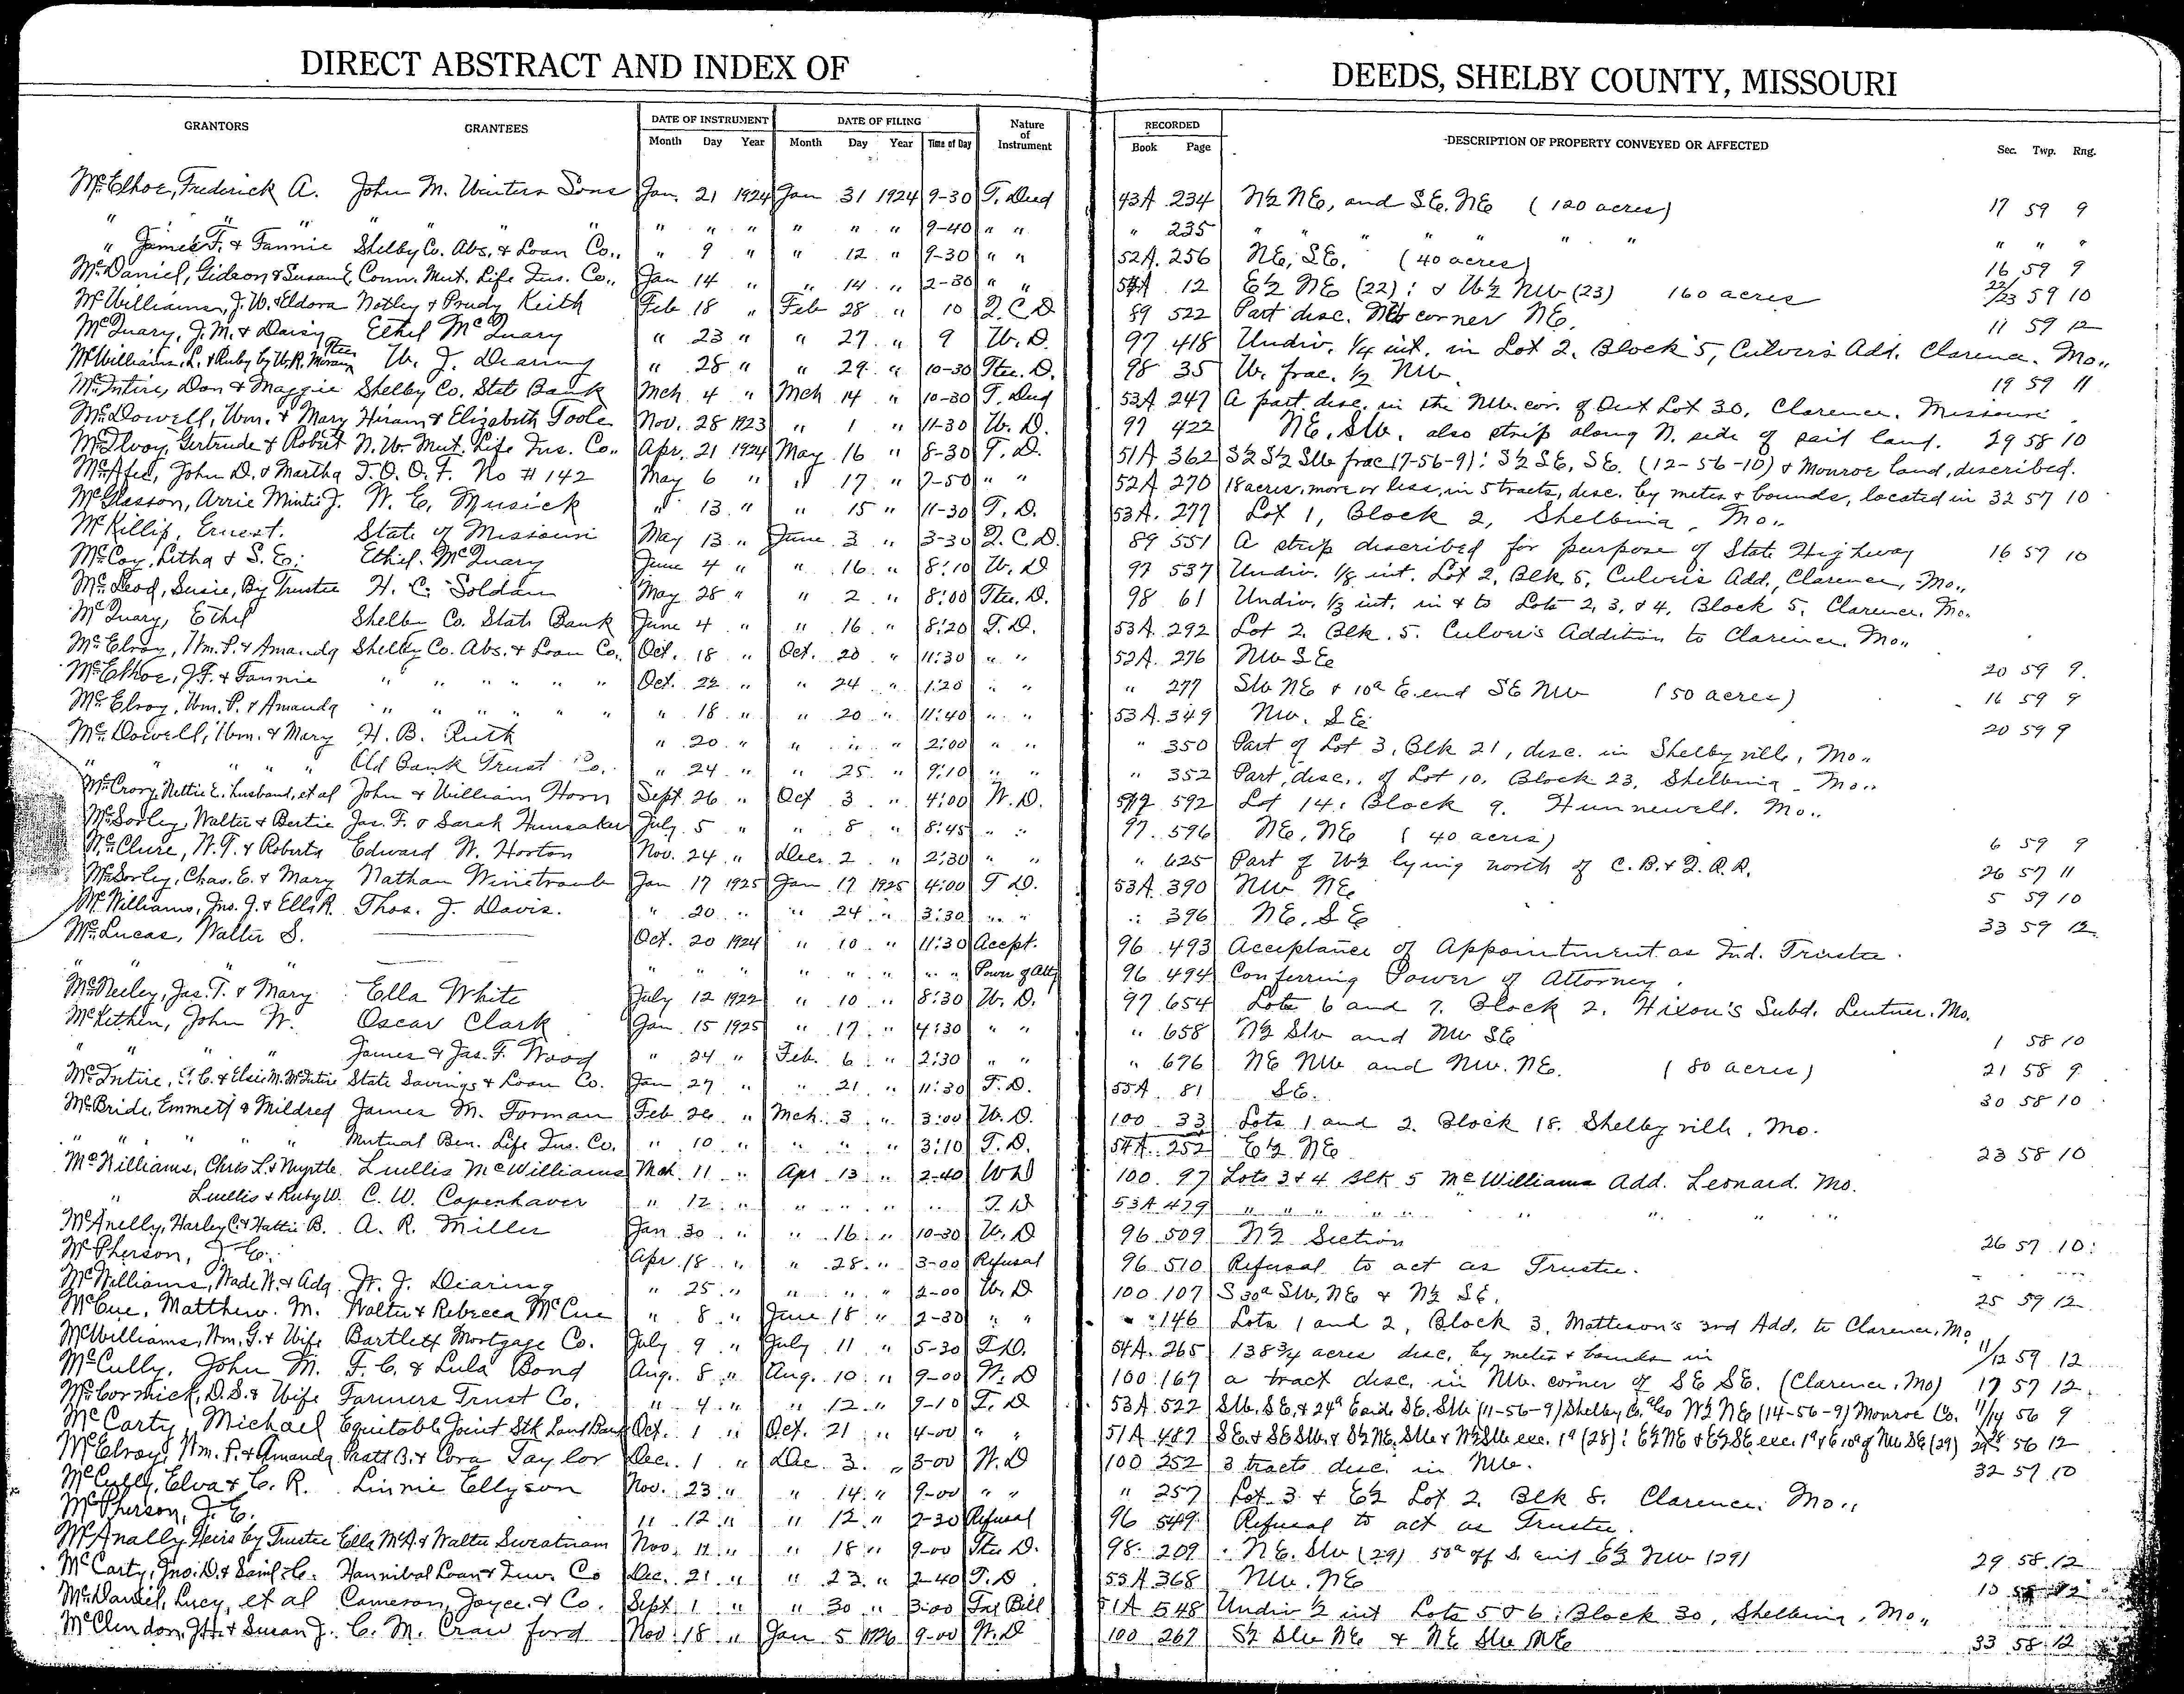 DIRECT ABSTRACT AND INDEX OF DEEDS, SHELBY COUNTY, MISSOURI
GRANTORS GRANTEES DATE OF INSTRUMENT DATE OF FILING Nature of Instrument RECORDED DESCRIPTION OF PROPERTY CONVEYED OR AFFECTED Sec. Twp. Rng.
Month Day Year Month Day Year Time of Day Book Page
McElhoe, Frederick A. John M. Winters Sons Jan. 21 1924 Jan 31 1924 9-30 T. Deed 43A 234 N½ NE, and S.E. NE (120 acres) 17 59 9
" " " " " " " " " 9-40 " " " 235 " " " " " " " "
" James F. & Fannie Shelby Co. Abs. & Loan Co., " 9 " " 12 " 9-30 " " 52A. 256 NE, S.E. (40 acres) 16 59 9
McDaniel, Gideon & Susan E. Conn. Mut. Life Ins. Co., Jan 14 " " 14 " 2-30 " " 54A 12 E½ NE (22); & W½ NW (23) 160 acres 22/23 59 10
McWilliams, J. W. & Eldora Notley & Prudy Keith Feb 18 " Feb 28 " 10 Q.C.D. 89 522 Part desc. NE corner NE. 11 59 12
McQuary, J. M. & Daisy Ethel McQuary " 23 " " 27 " 9 W.D. 97 418 Undiv. ¼ int. in Lot 2, Block 5, Culver's Add. Clarence. Mo.,
McWilliams, L. & Ruby by W.R. Moran Tree W. J. Dearing " 28 " " 29 " 10-30 Tree. D. 98 35 W. frac. ½ NW. 19 59 11
McIntire, Don & Maggie Shelby Co. State Bank Mch 4 " Mch 14 " 10-30 T. Deed 53A 247 A part desc. in the NW. cor. of Out Lot 30, Clarence. Missouri
McDowell, Wm. & Mary Hiram & Elizabeth Toole Nov. 28 1923 " 1 " 11-30 W.D. 97 422 NE, SW, also strip along N. side of said land. 29 58 10
McIlvoy, Gertrude & Robert N.W. Mut. Life Ins. Co., Apr. 21 1924 May 16 " 8-30 T.D. 51A 362 S½ S½ SW frac (7-56-9); S½ SE, SE. (12-56-10) & Monroe land, described.
McAfee, John D. & Martha I.O.O.F. No # 142 May 6 " " 17 " 7-50 " " 52A 270 18 acres, more or less, in 5 tracts, desc. by metes & bounds, located in 32 57 10
McGlasson, Arrie Mintie J. W. E. Musick " 13 " " 15 " 11-30 T.D. 53A. 277 Lot 1, Block 2, Shelbina, Mo.,
McKillip, Ernest. State of Missouri May 13 " June 3 " 3-30 Q.C.D. 89 551 A strip described for purpose of State Highway 16 57 10
McCoy, Letha & S. E. Ethel McQuary June 4 " " 16 " 8:10 W.D 97 537 Undiv. ⅛ int. Lot 2, Blk 5, Culver's Add., Clarence, Mo.,
McLeod, Susie, By Trustee H. C. Soldan May 28 " " 2 " 8:00 Tree. D. 98 61 Undiv. ⅓ int. in & to Lots 2, 3, & 4, Block 5, Clarence. Mo.
McQuary, Ethel Shelby Co. State Bank June 4 " " 16 " 8:20 T.D. 53A 292 Lot 2. Blk. 5. Culver's Addition to Clarence. Mo.,
McElroy, Wm. P. & Amanda Shelby Co. Abs. & Loan Co. Oct. 18 " Oct. 20 " 11:30 " " 52A. 276 NW SE 20 59 9.
McElhoe, J.F. & Fannie " " " " " " Oct. 22 " " 24 " 1:20 " " " 277 SW NE & 10a E. end SE NW (50 acres) 16 59 9
McElroy, Wm. P. & Amanda " " " " " " " 18 " " 20 " 11:40 " " 53A. 349 NW. SE 20 59 9
McDowell, Wm. & Mary H. B. Ruth " 20 " " " " 2:00 " " " 350 Part of Lot 3, Blk 21, desc. in Shelbyville, Mo.,
" " " " " Old Bank Trust Co. " 24 " " 25 " 9:10 " " " 352 Part, desc., of Lot 10, Block 23, Shelbina Mo.,
McCrory, Nettie E. husband, et al John & William Horn Sept. 26 " Oct 3 " 4:00 W.D. 97 592 Lot 14; Block 9. Hunnewell. Mo.,
McSorley, Walter & Bertie Jas. F. & Sarah Hunsaker July 5 " " 8 " 8:45 " " 97 596 NE, NE (40 acres) 6 59 9
McClure, W. T. & Roberta Edward W. Horton Nov. 24 " Dec. 2 " 2:30 " " " 625 Part of W½ lying north of C. B. & Q. R. R. 26 57 11
McSorley, Chas. E. & Mary Nathan Winetraub Jan 17 1925 Jan 17 1925 4:00 T.D. 53A 390 NW NE 5 59 10
McWilliams, Jno. J. & Ella R. Thos. J. Davis. " 20 " " 24 " 3:30 " " " 396 NE. SE 33 59 12
McLucas, Walter S. Oct. 20 1924 " 10 " 11:30 Accept. 96 493 Acceptance of Appointment as Ind. Trustee.
" " " " " " " " " " Power of Atty 96 494 Conferring Power of Attorney.
McNeeley, Jas. T. & Mary Ella White July 12 1922 " 10 " 8:30 W.D. 97 654 Lots 6 and 7. Block 2. Hixon's Subd. Lentner. Mo.
McKithen, John W. Oscar Clark Jan 15 1925 " 17 " 4:30 " " " 658 N½ SW and NW SE 1 58 10
" " " " James & Jas. F. Wood " 24 " Feb. 6 " 2:30 " " " 676 NE NW and NW. NE. (80 acres) 21 58 9
McIntire, C. & Elsie M. McIntire State Savings & Loan Co. Jan 27 " " 21 " 11:30 T.D. 55A 81 SE. 30 58 10
McBride, Emmett & Mildred James M. Forman Feb 26 " Mch. 3 " 3:00 W.D. 100 33 Lots 1 and 2. Block 18. Shelbyville, Mo.
" " " " " Mutual Ben. Life Ins. Co. " 10 " " " " 3:10 T.D. 54A. 252 E½ NE 23 58 10
McWilliams, Chris L. & Myrtle Luellis McWilliams Mch. 11 " Apr 13 " 2-40 WD 100 97 Lots 3 & 4 Blk 5 McWilliams Add. Leonard. Mo.
" Luellis & Ruby W. C. W. Copenhaver " 12 " " " " " T.D 53A 479 " " " " " " " " "
McAnelly, Harley C. & Hattie B. A. R. Miller Jan 30 " " 16 " 10-30 W.D 96 509 N½ Section 26 57 10
McPherson, J. E. Apr 18 " " 28 " 3-00 Refusal 96 510 Refusal to act as Trustee.
McWilliams, Wade W. & Ada W. J. Dearing " 25 " " " " 2-00 W.D 100 107 S 30a SW, NE & N½ SE. 25 59 12
McCue, Matthew. M. Walter & Rebecca McCue " 8 " June 18 " 2-30 " " " 146 Lots 1 and 2, Block 3, Matteson's 3rd Add. to Clarence, Mo.
McWilliams, Wm. G. & Wife Bartlett Mortgage Co. July 9 " July 11 " 5-30 T.D. 54A. 265 138¾ acres desc. by metes & bounds in 11/12 59 12
McCully, John M. F. C. & Lula Bond Aug. 8 " Aug. 10 " 9-00 W.D 100 167 a tract desc. in NW. corner of SE SE. (Clarence, Mo) 17 57 12
McCormick, D.S. & Wife Farmers Trust Co. " 4 " " 12 " 9-10 T.D 53A 522 SW. SE. & 24a E side SE. SW (11-56-9) Shelby Co. also W½ NE (14-56-9) Monroe Co. 11/14 56 9
McCarty, Michael Equitable Joint Stk Land Bank Oct. 1 " Oct. 21 " 4-00 " " 51A 487 SE & SE SW. & S½ NE. SW & W½ SW exc. 1a (28); E½ NE & E½ SE exc. 1a & E 10a of NW SE (29) 56 12
McElroy, Wm. P. & Amanda Pratt B. & Cora Taylor Dec. 1 " Dec 3. " 3-00 W.D 100 252 3 tracts desc. in NW. 32 57 10
McCully, Elva & C. R. Linnie Ellyson Nov. 23 " " 14 " 9-00 " " " 257 Lot 3 & E½ Lot 2. Blk 8. Clarence. Mo.,
McPherson, J. E. " 12 " " 12 " 2-30 Refusal 96 549 Refusal to act as Trustee.
McAnally Heirs by Trustee Ella McA. & Walter Sweatnam Nov. 11 " " 18 " 9-00 Tree D. 98 209 NE. SW (29) 50a off S. end E½ NW (29) 29 58 12
McCarty, Jno. D. & Saml. C. Hannibal Loan & Inv. Co Dec. 21 " " 23 " 2-40 T.D 55A 368 NW. NE 10 58 12
McDaniel, Lucy, et al Cameron, Joyce & Co. Sept 1 " " 30 " 3:00 Tax Bill 51A 548 Undiv ½ int Lots 5 & 6; Block 30, Shelbina, Mo.,
McClendon, J.H. & Susan J. C. M. Crawford Nov. 18 " Jan 5 1926 9-00 W.D 100 267 S½ SW NE & NE SW NE 33 58 12